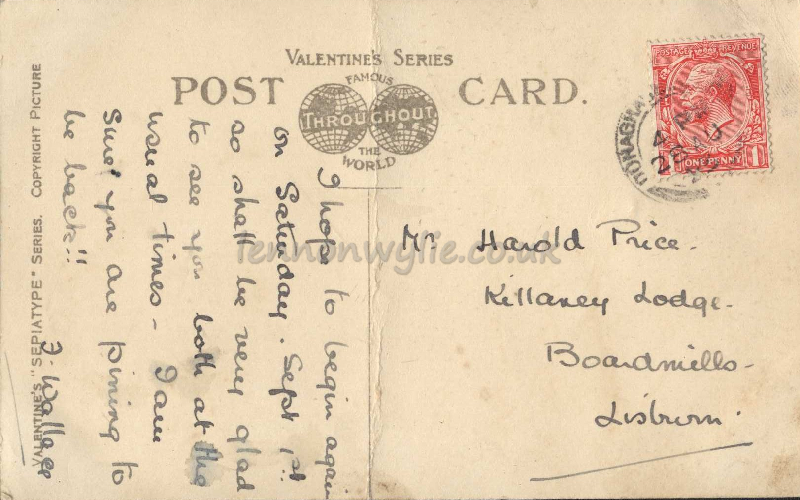 VALENTINE'S SERIES
POST CARD.
FAMOUS
THROUGHOUT
THE
WORLD
I hope to begin again
on Saturday. Sept 1st!!
so shall be very glad
to see you both at the
usual times -
I am
sure you are pining to
be back!!
J. Wallace
VALENTINE'S "SEPIATYPE" SERIES. COPYRIGHT PICTURE
POSTAGE REVENUE
ONE PENNY 1
4
28 AU
Mr Harold Price.
Killaney Lodge.
Boardmills.
Lisburn.
lennonwylie.co.uk